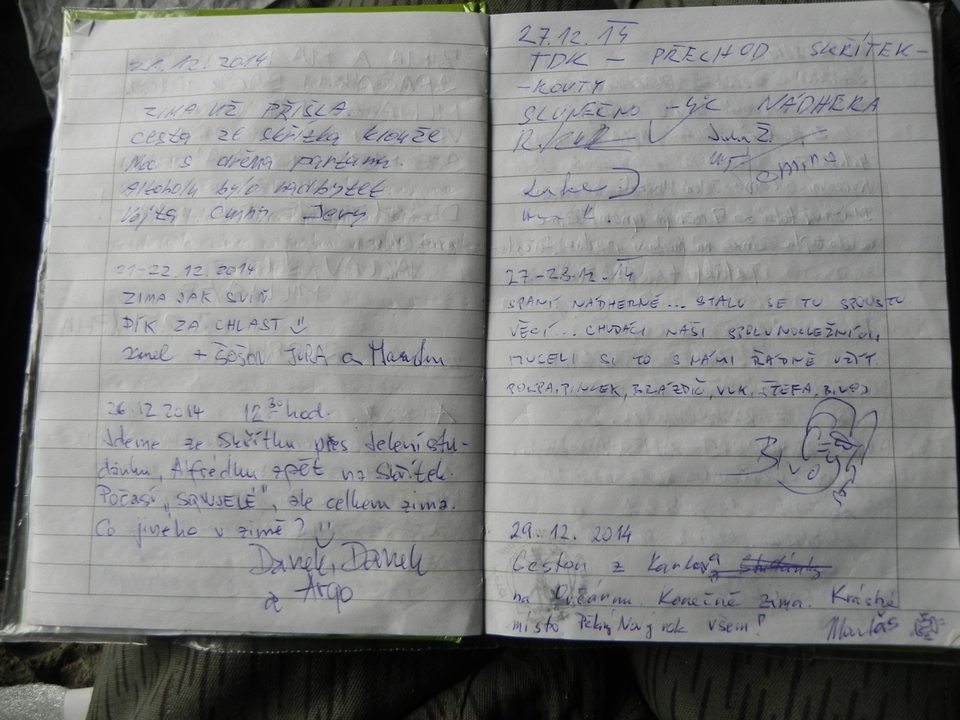 21.12.2014
ZIMA UŽ PŘIŠLA.
cesta ze skřítka klouže
Noc s dvěma partama.
Alcoholu bylo nadbytek
Vojta Jery
21-22.12.2014
ZIMA JAK SVIŇ.
DÍK ZA CHLAST
+ JURA a
26.12.2014 12 30 hod.
Jdeme ze Skřítku přes Jelení stu-
dánku, Alfrédku zpět na Skřítek.
Počasí ale celkem zima.
Co jiného v zimě?
Darek, Darek
a Argo
27.12.14
TDK – PŘECHOD SKŘÍTEK-
-KOUTY
SLUNEČNO NÁDHERA
27-28.12.14
SPANÍ NÁDHERNÉ... STALO SE TU SPOUSTU
VĚCÍ... CHUDÁCI NAŠI SPOLUNOCLEŽNÍCI,
MUSELI SI TO S NÁMI ŘÁDNĚ UŽÍT.
VLK, ŠTEFA, BIVOJ
BIVOJ
29.12.2014
Cestou z Karlova
na Ovčárnu. Konečně zima. Krásné
místo Pěkný Nový rok všem!